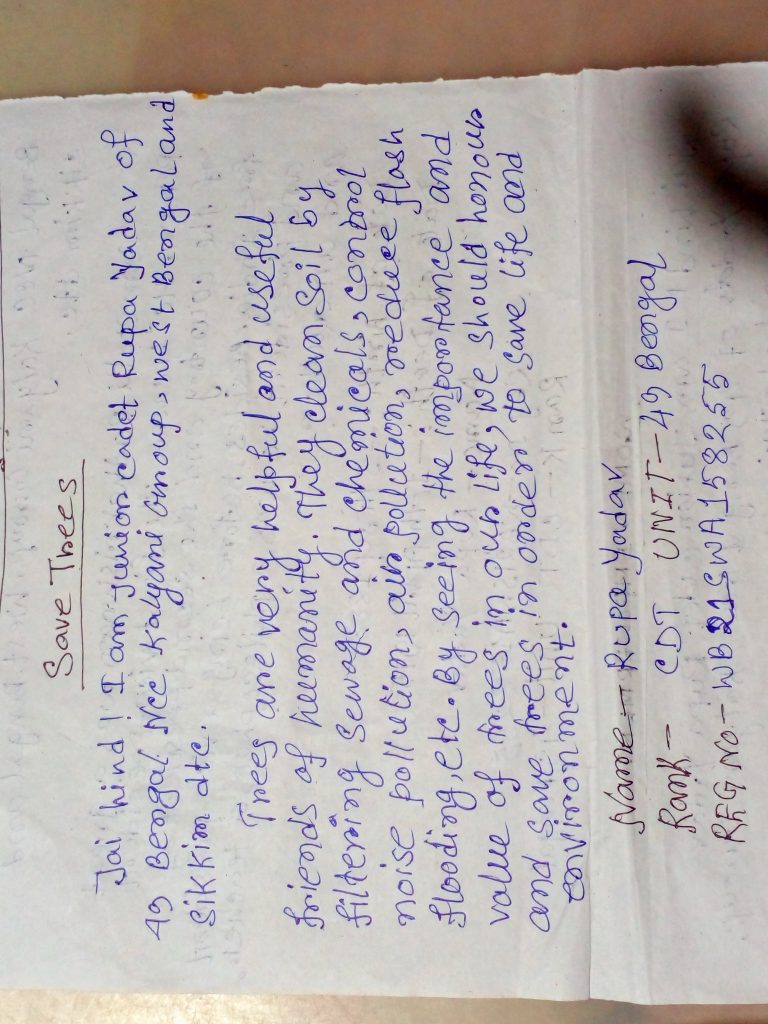 Save Trees
Jai hind! I am junior cadet Rupa Yadav of
49 Bengal Ncc. Kalyani Group, west Bengal and
Sikkim dte.
Trees are very helpful and useful
friends of humanity. They clean soil by
filtering sewage and chemicals, control
noise pollution, air pollution, reduce flash
flooding, etc. By seeing the importance and
value of trees in our life, we should honour
and save trees in order to save life and
environment.
Name - Rupa Yadav
Rank - CDT UNIT - 49 Bengal
REG NO - WB21SWA158255